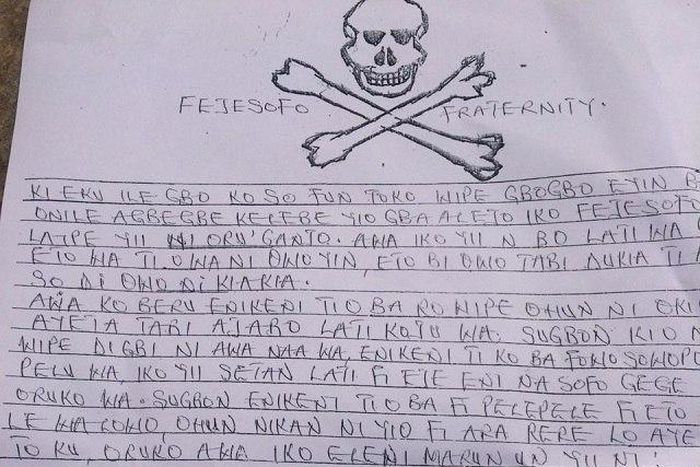 FEJESOFO FRATERNITY.
KI EKU ILE GBO KO SO FUN TOKO WIPE GBOGBO EYIN
ONILE AGBEGBE KELEBE YIO GBA ALEJO IKO FEJESOFO
LAIPE YII NI ORU GANJO. AWA IKO YII N BO LATI WA
ETO WA TI OWA NI OWO YIN, ETO BI OWO TABI DUKIA TI
SO DI OWO DI KIAKIA.
AWA KO BERU ENIKENI TIO BA RO WIPE OHUN NI
AYETA TABI AJABO LATI KOJU WA. SUGBON KIO
WIPE DIGBI NI AWA NAA WA, ENIKENI TI KO BA FOWOSOWOPO
PELU WA, IKO YII SETAN LATI FI EJE ENI NA SOFO GEGE
ORUKO WA. SUGBON ENIKENI TIO BA FI PELEPELE FI ETO
LE WA LOWO, OHUN NIKAN NI YIO FI ARA RERE LO AYE
TO KU, ORUKO AWA IKO ELENI MARUN UN YII NI: